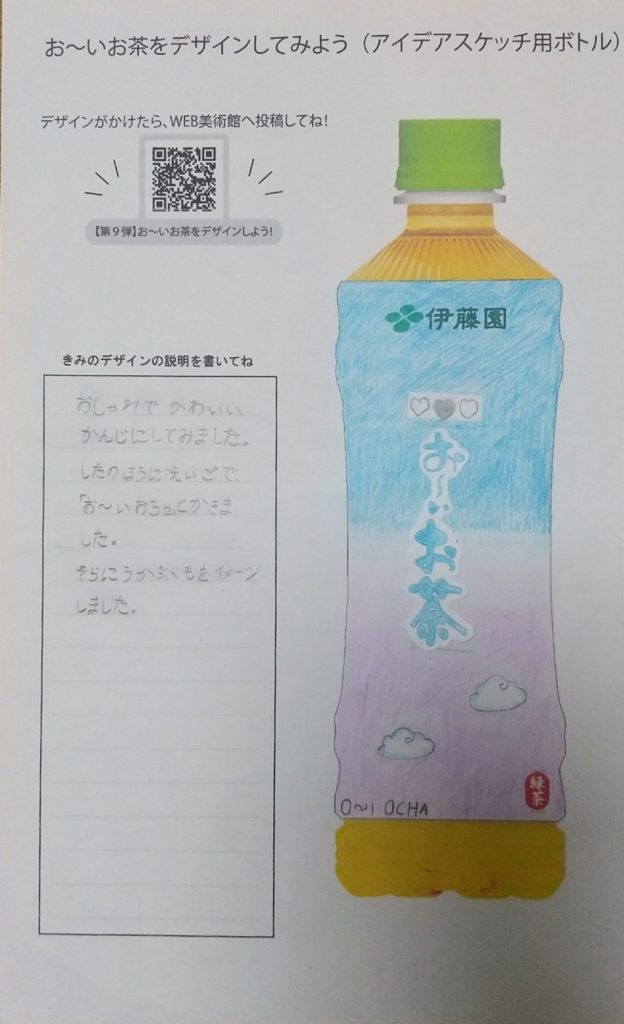 お〜いお茶をデザインしてみよう（アイデアスケッチ用ボトル）
デザインがかけたら、WEB美術館へ投稿してね！
【第９弾】お〜いお茶をデザインしよう！
きみのデザインの説明を書いてね
おしゃれで かわいい
かんじにしてみました。
したのほうにえいごで、
「お〜いおちゃ」とかきま
した。
そらにうかぶくもをイメージ
しました。
伊藤園
お〜いお茶
緑茶
O〜I OCHA